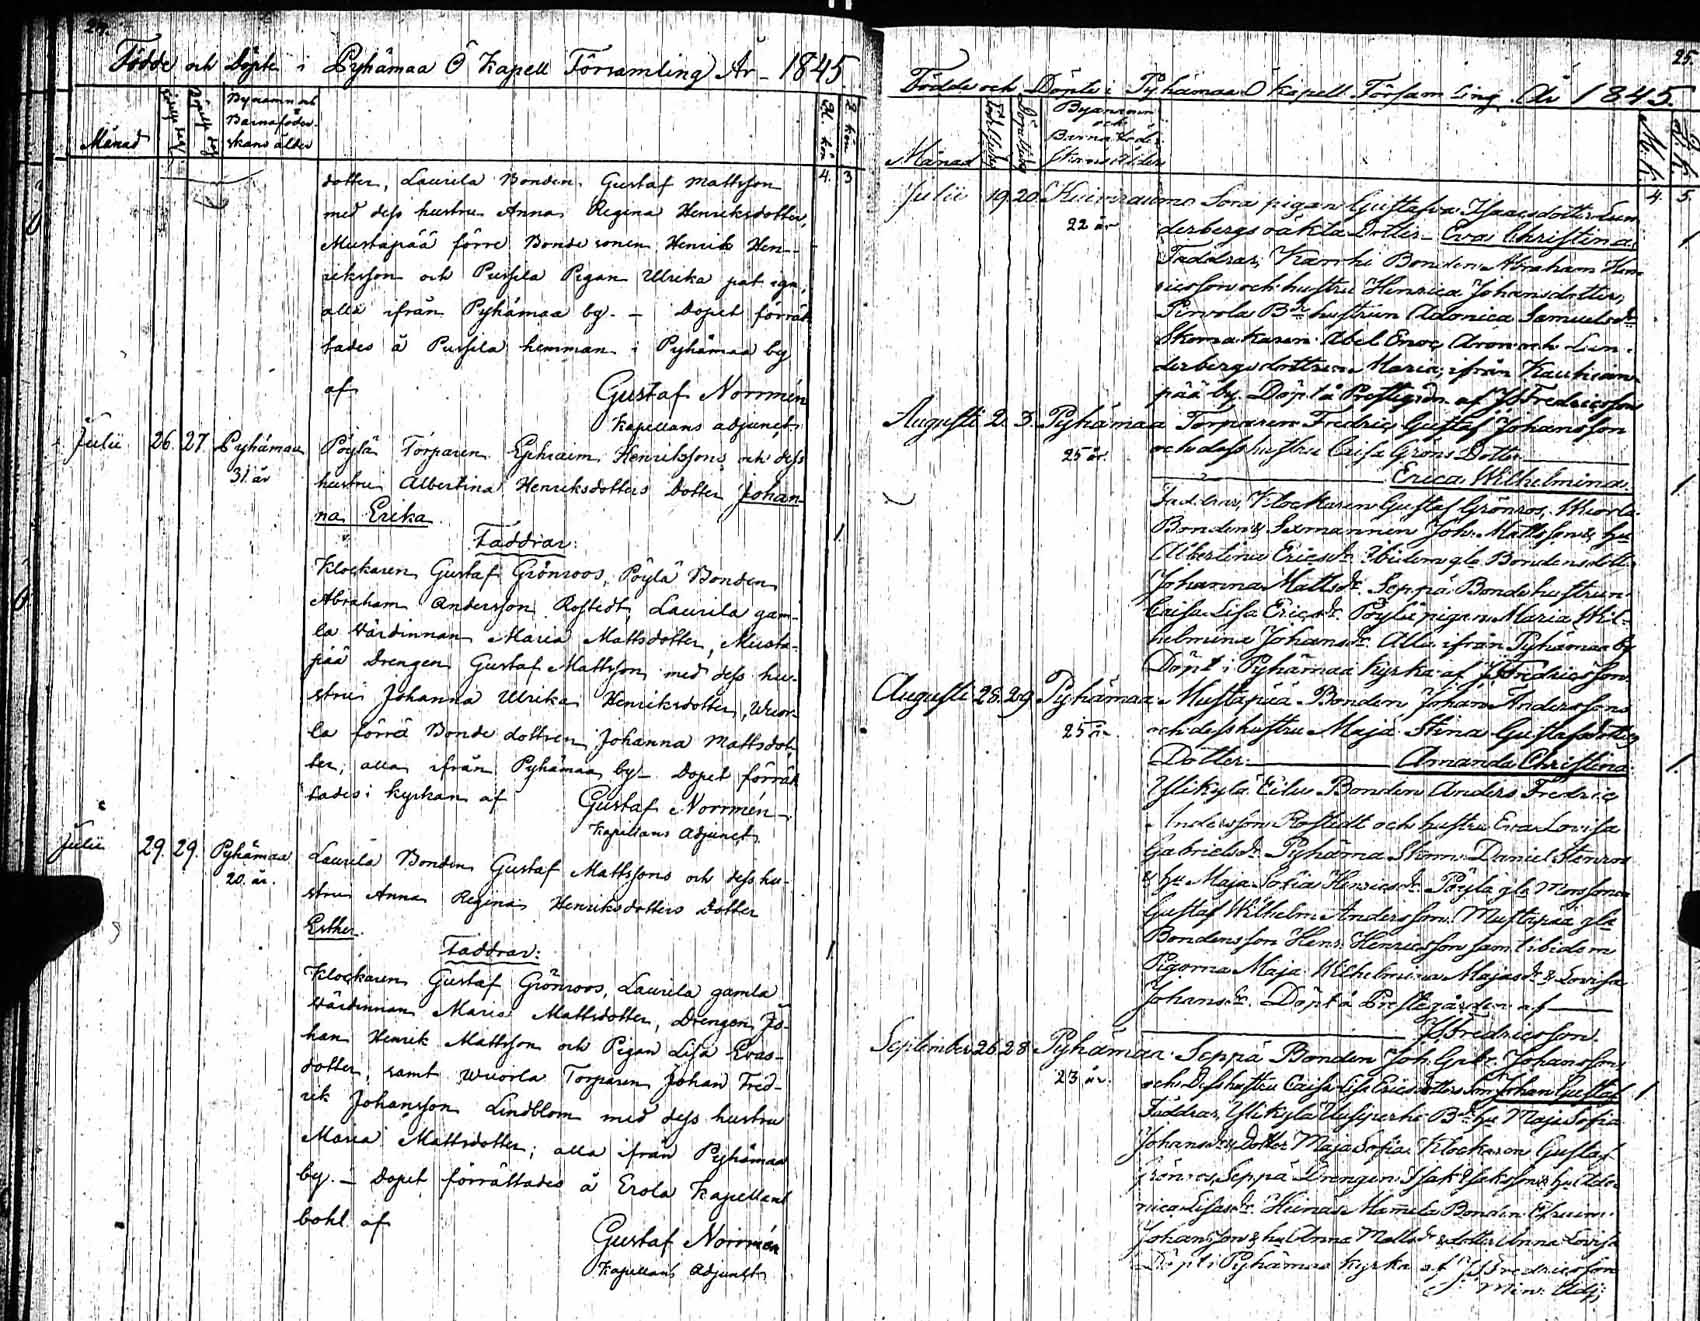 24.
Födde och Döpte i Pyhämaa Ö Kapell Församling År - 1845
Månad
Bynamn och
Barnaföder-
skans ålder
M. kön
Q. kön
4. 3
dotter, Laurila Bonden Gustaf Mattsson
med dess hustru Anna Regina Henriksdotter,
Mustapää förre Bonde sonen Henrik Hen-
riksson och Pussila Pigan Ulrika
alla ifrån Pyhämaa by. - Dopet förrät
tades å Pussila hemman i Pyhämaa by
af Gustaf Norrmén
Kapellans adjunct.
Julii 26. 27. Pyhämaa
31. år
Pöylä Torparen Ephraim Henrikssons och dess
hustru Albertina Henriksdotters Dotter Johan-
na Erika.
1
Faddrar:
Klockaren Gustaf Grönroos, Pöylä Bonden
Abraham Andersson Rostedt, Laurila gam-
la Värdinnan Maria Mattsdotter, Musta-
pää Drengen Gustaf Mattsson med dess hu-
stru Johanna Ulrika Henriksdotter, Wuor-
la förra Bonde dottren Johanna Mattsdot-
ter, alla ifrån Pyhämaa by - Dopet förrät
tades i kyrkan af Gustaf Norrmén
Kapellans Adjunct.
Julii 29. 29. Pyhämaa
20. år.
Laurila Bonden Gustaf Mattssons och dess hu-
stru Anna Regina Henriksdotters Dotter
Esther.
1
Faddrar:
Klockaren Gustaf Grönroos, Laurila gamla
Värdinnan Maria Mattsdotter, Drengen Jo-
han Henrik Mattsson och Pigan Lisa Evas-
dotter, samt Wuorla Torparen Johan Fred-
rik Johansson Lindblom med dess hustru
Maria Mattsdotter; alla ifrån Pyhämaa
by. - Dopet förrättades å Erola Kapellans
bohl af
Gustaf Norrmén
Kapellans Adjunct.
25.
Födde och Döpte i Pyhämaa Ö Kapell Församling År 1845.
Månad
Byanamn
och
Barnaföder
skans ålder
M. k.
Q. k.
4. 5
Julii 19 20
22 år
Sora pigan Gustafva Isaacsdotter Lun
derbergs oäkta Dotter - Eva Christina
1
Faddrar, Kamhi Bonden Abraham Hen
ricsson och hustru Henrica Johansdotter,
hustrun Adonica Samuelsdr
derbergs dottren Maria, ifrån
pää by. Döpt å Prestgården af J Fredricsson
Augusti 2. 3. Pyhämaa
25 år
Torparen Fredric Gustaf Johansson
och dess hustru Caisa Gröns Dotter
Erica Wilhelmina.
1
Faddrar, Klockaren Gustaf Grönros, Wuorla
Bonden & Sexmannen Joh. Mattsson & hu
Albertina Ericsdr. Ibidem gla Bondens dotter
Johanna Mattsdr. Seppä Bondehustrun
Caisa Lisa Ericsdr. Pöylä pigan Maria Wil-
helmina Johansdr. Alla ifrån Pyhämaa by
Döpt i Pyhämaa Kyrka af J. Fredricsson.
Augusti 28. 29 Pyhämaa
25 år
Mustapää Bonden Johan Anderssons
och dess hustru Maja Stina Gustafsdotters
Dotter. Amanda Christina.
1
Ylikylä Eilu Bonden Anders Fredric
Andersson Rostedt och hustru Eva Lovisa
Gabrielsdr. Pyhämaa Skom. Daniel Stenros
& hu Maja Sofia Henricsdr. Pöylä gla
Gustaf Wilhelm Andersson. Mustapää gla
Bondensson Henr. Henricsson samt ibidem
Pigorna Maja Wilhelmina Majasdr. & Lovisa
Johansdr. Döpt å Prestegården af
J Fredricsson.
September 26 28 Pyhämaa
23 år.
Seppä Bonden Joh. Gust. Johanssons
och dess hustru Caisa Lisa Ericsdotters Son Johan Gustaf
1
Faddrar, Ylikylä Uusiperhe Bdr. hu Maja Sofia
Johansdr & dotter Maja Sofia. Klockaren Gustaf
Grönros, Seppä Drengen Isak Isaksson & hu
Lisasdr. Mamila Bonden Efraim
Johansson & hu Anna Mattsdr & dotter Anna Lovisa
Döpt i Pyhämaa Kyrka af J Fredricsson
Min: Adj: